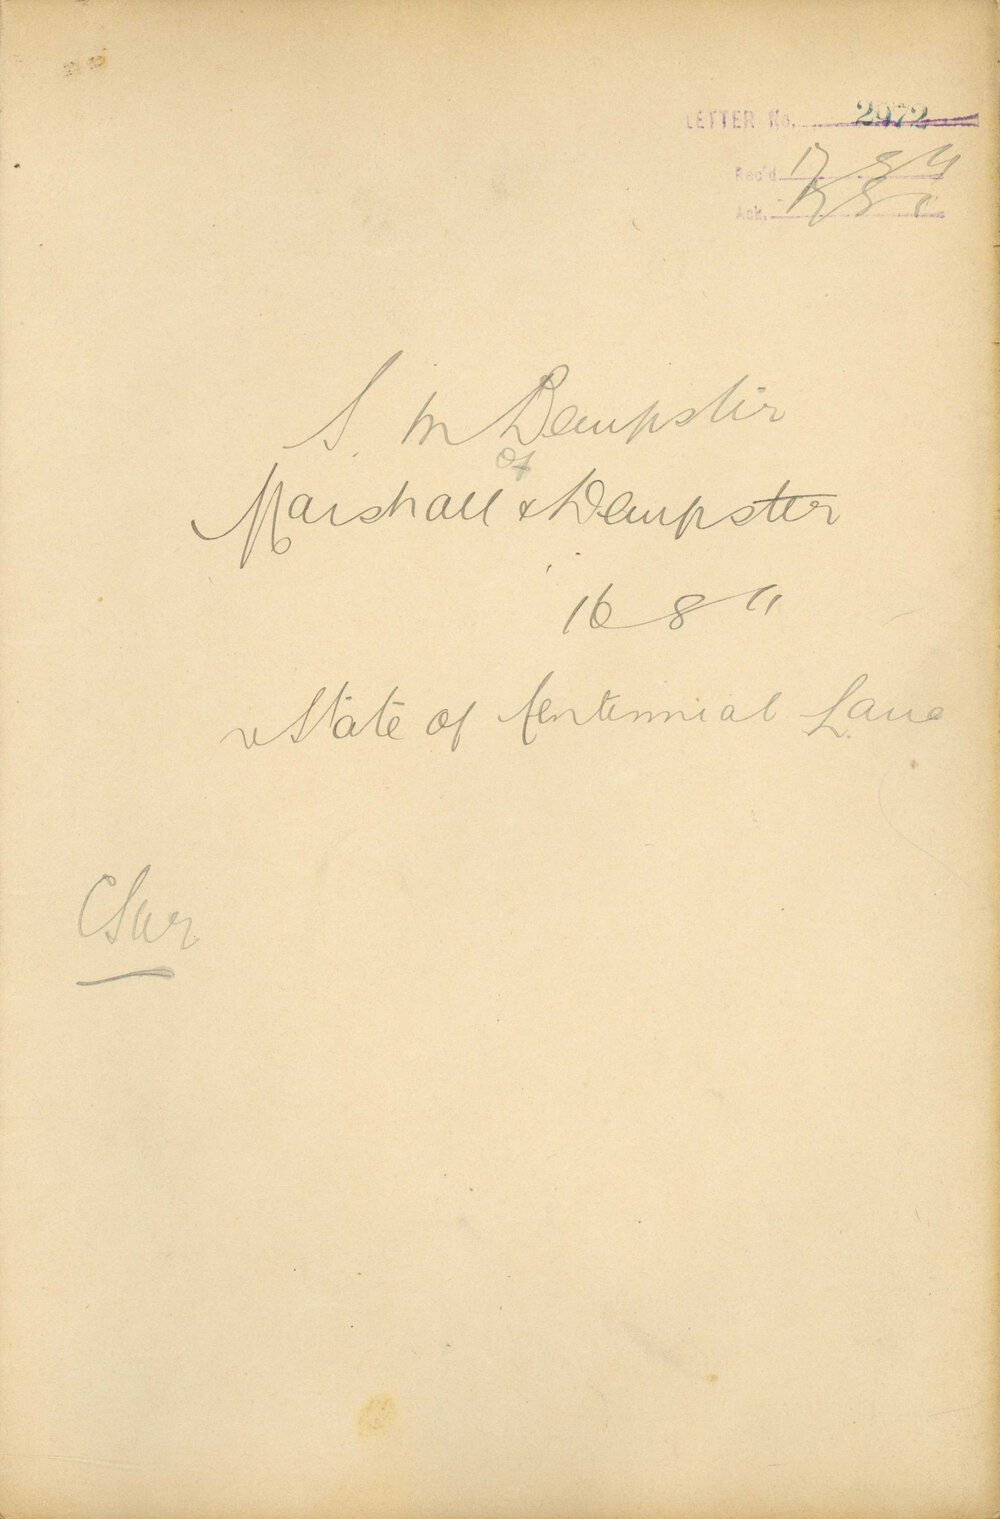 LETTER No. 2972
Rec'd 17 8 
Ack. 17 8 
S. M Dempster
of
Marshall & Dempster
16 8 11
State of Centennial Lane